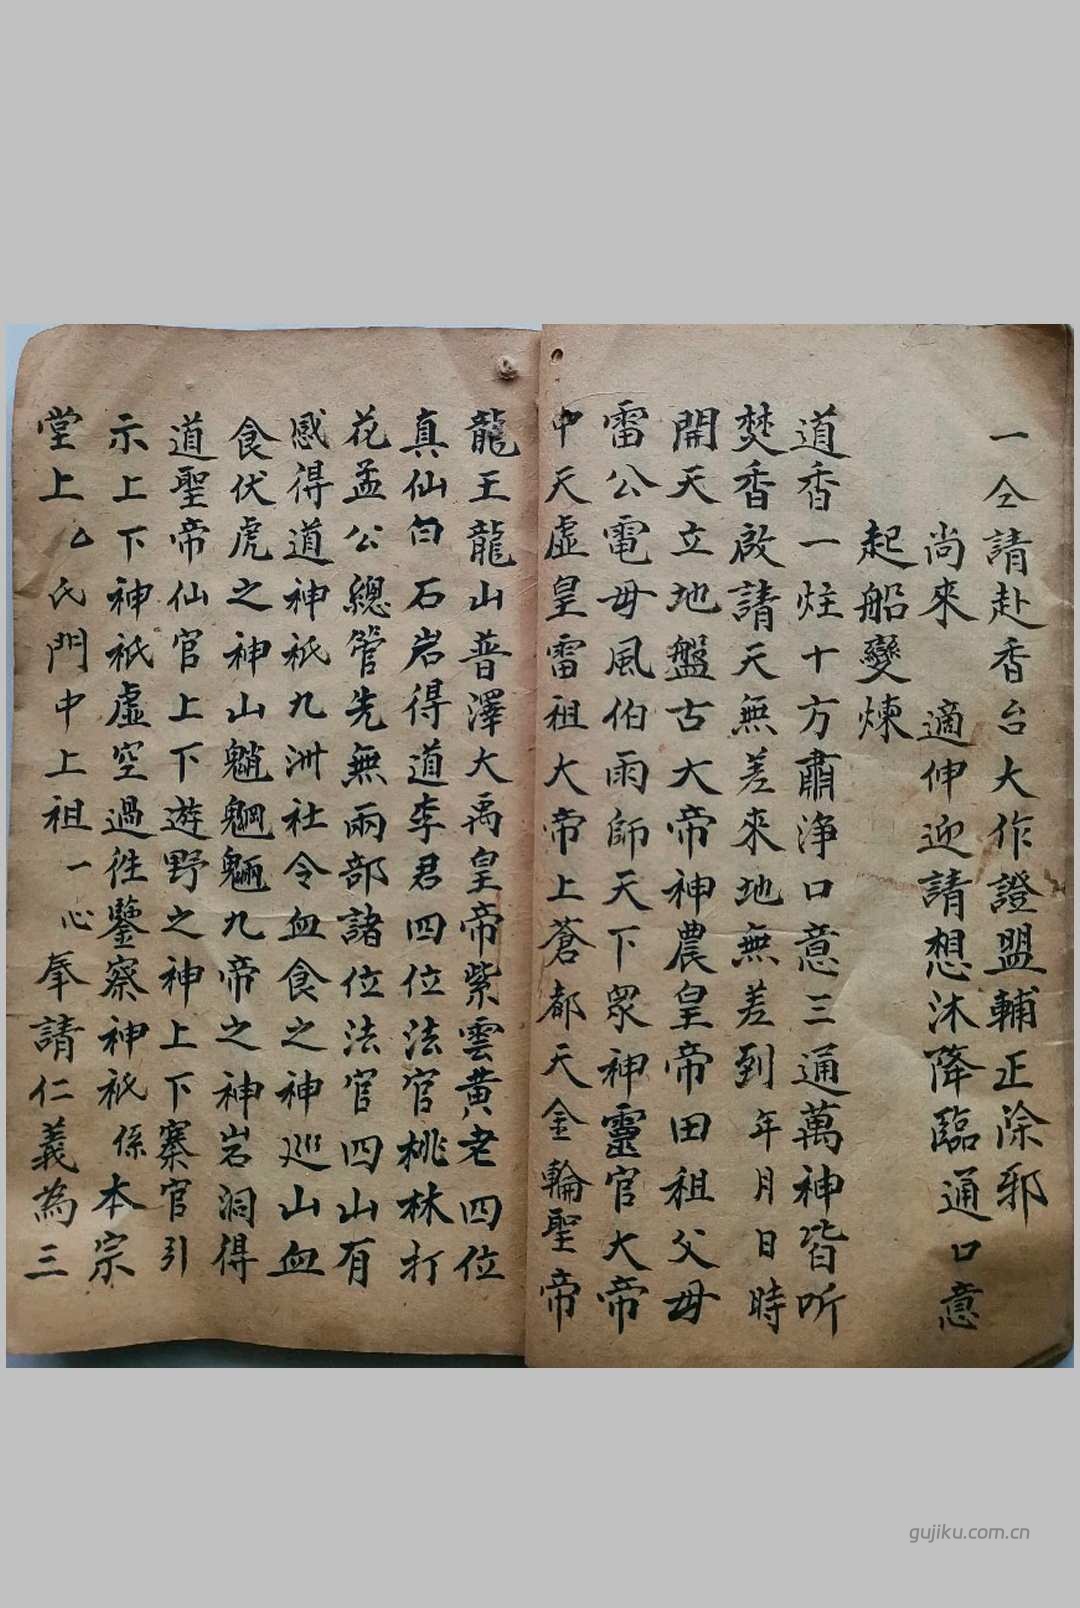 一仝請赴香台大作證盟輔正除邪
尚來 適伸迎請想沐降臨 通口意
起船變煉
道香一炷十方肅浄口意三通萬神皆听
焚香啟請天無差來地無差到年月日時
開天立地盤古大帝神農皇帝田祖父母
雷公電母風伯雨師天下眾神靈官大帝
中天虛皇雷祖大帝上蒼都天金輪聖帝
龍王龍山普澤大禹皇帝紫雲黄老四位
真仙白石岩得道李君四位法官桃林打
花孟公總管先無兩部諸位法官四山有
感得道神祇九洲社令血食之神巡山血
食伏虎之神山魈魍魎九帝之神岩洞得
道聖帝仙官上下遊野之神上下寨官引
示上下神祇虛空過徃鑒察神祇係本宗
堂上厶氏門中上祖一心奉請仁義為三
gujiku.com.cn